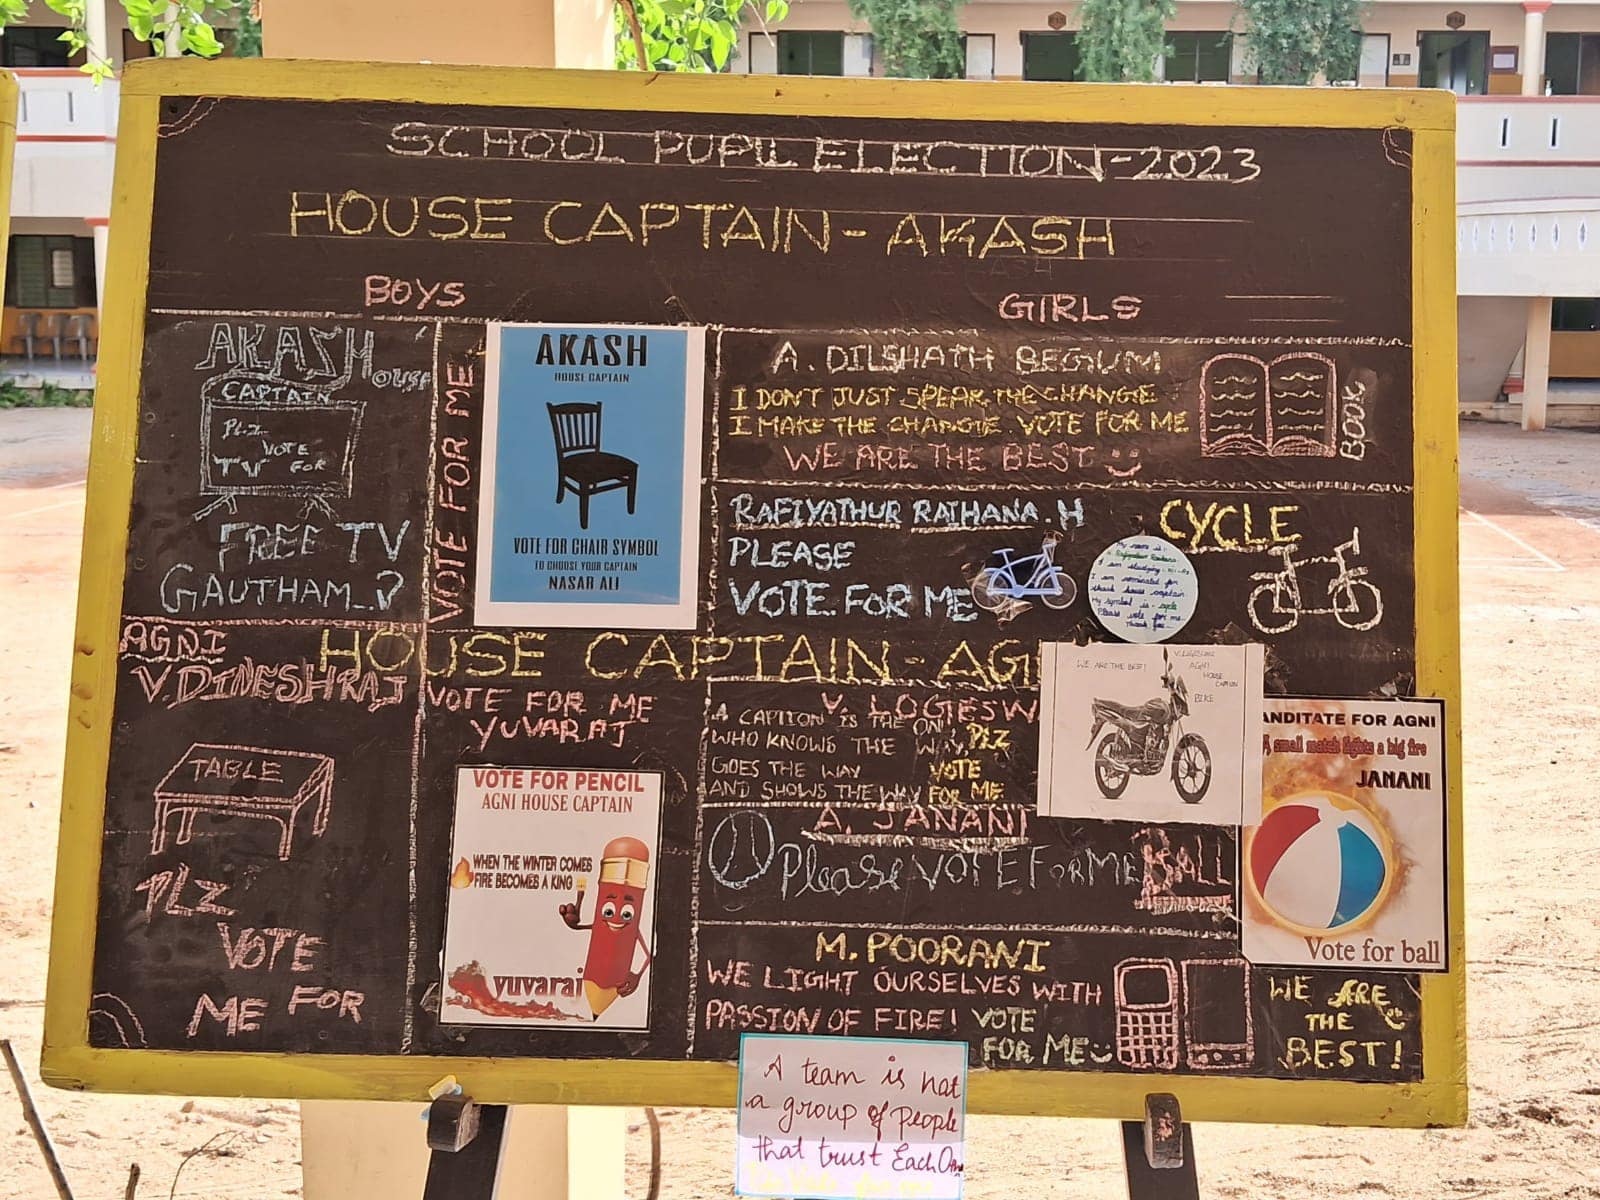 SCHOOL PUPIL ELECTION-2023
HOUSE CAPTAIN-AKASH
BOYS
GIRLS
AKASH
HOUSE
CAPTAIN
PLZ
VOTE
TV FOR
FREE TV
GAUTHAM
VOTE FOR ME
AKASH
HOUSE CAPTAIN
VOTE FOR CHAIR SYMBOL
TO CHOOSE YOUR CAPTAIN
NASAR ALI
A. DILSHATH BEGUM
I DON'T JUST SPEAR THE CHANGE
I MAKE THE CHANGE VOTE FOR ME
WE ARE THE BEST
BOOK
RAFIYATHUR RATHANA.H
PLEASE
VOTE FOR ME
CYCLE
My name is
I am studying
I am nominated for
house captain
My symbol is cycle
Please vote for me
Thank you
HOUSE CAPTAIN-AG
AGNI
V.DINESHRAJ
TABLE
PLZ
VOTE
ME FOR
VOTE FOR ME
YUVARAJ
VOTE FOR PENCIL
AGNI HOUSE CAPTAIN
WHEN THE WINTER COMES
FIRE BECOMES A KING
yuvaraj
V. LOGESW
A CAPTION IS THE ON
WHO KNOWS THE WAY,
GOES THE WAY
AND SHOWS THE WAY
PLZ
VOTE
FOR ME
WE ARE THE BEST!
AGNI
HOUSE
BIKE
A. JANANI
Please VOTE FOR ME BALL
ANDITATE FOR AGNI
A small match lights a big fire
JANANI
Vote for ball
M. POORANI
WE LIGHT OURSELVES WITH
PASSION OF FIRE! VOTE
FOR ME
WE ARE
THE
BEST!
A team is not
a group of people
that trust Each